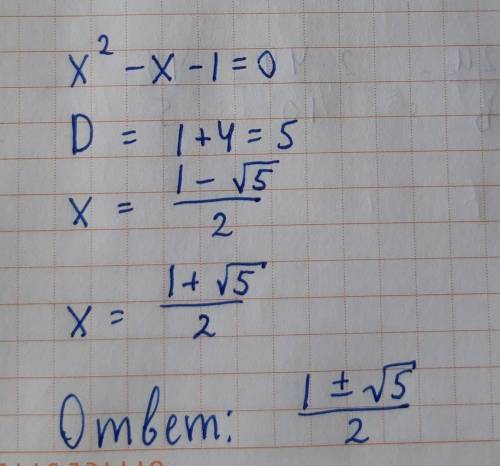 x² - x - 1 = 0
D = 1 + 4 = 5
x = (1 - √5)/2
x = (1 + √5)/2
Ответ: (1 ± √5)/2